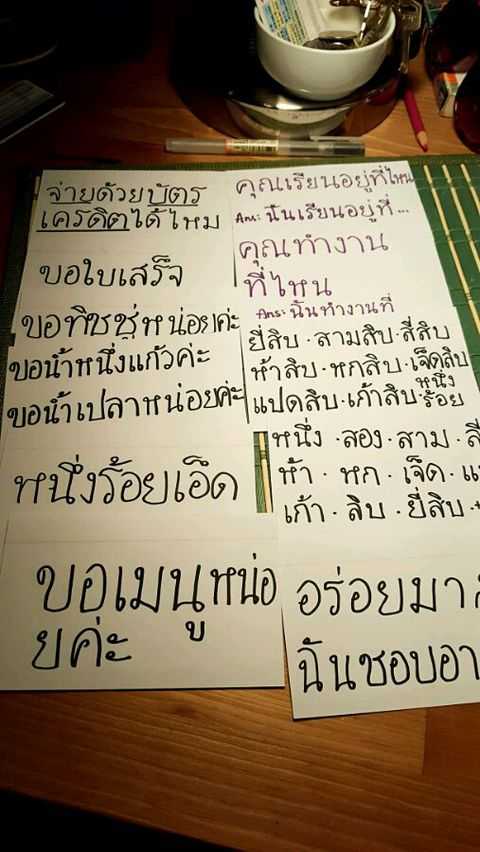 จ่ายด้วยบัตร
เครดิตได้ไหม
ขอใบเสร็จ
ขอทิชชู่หน่อยค่ะ
ขอน้ำหนึ่งแก้วค่ะ
ขอน้ำเปล่าหน่อยค่ะ
หนึ่งร้อยเอ็ด
ขอเมนูหน่อ
ยค่ะ
คุณเรียนอยู่ที่ไหน
Ans: ฉันเรียนอยู่ที่...
คุณทำงาน
ที่ไหน
Ans: ฉันทำงานที่
ยี่สิบ · สามสิบ · สี่สิบ
ห้าสิบ · หกสิบ · เจ็ดสิบ
แปดสิบ · เก้าสิบ · หนึ่งร้อย
หนึ่ง · สอง · สาม · สี
ห้า · หก · เจ็ด ·
เก้า · สิบ · ยี่สิบ ·
อร่อยมา
ฉันชอบอา